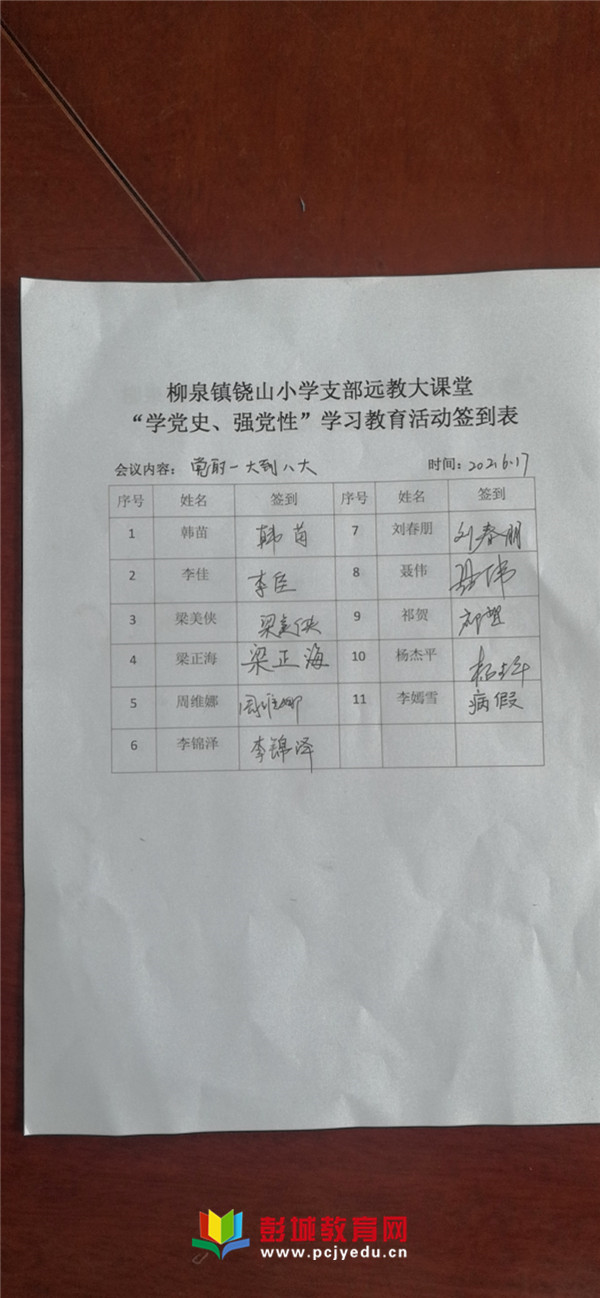 柳泉镇铙山小学支部远教大课堂
“学党史、强党性”学习教育活动签到表
会议内容：党的一大到八大 时间：2021.6.17
序号 姓名 签到 序号 姓名 签到
1 韩苗 韩苗 7 刘春朋 刘春朋
2 李佳 李佳 8 聂伟 聂伟
3 梁美侠 梁美侠 9 祁贺 祁贺
4 梁正海 梁正海 10 杨杰平
5 周维娜 周维娜 11 李嫣雪 病假
6 李锦泽 李锦泽
彭城教育网
www.pcjyedu.cn